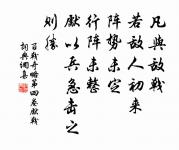 凡與敵戰
若敵人初來
陣勢未定
行陣未整
獻以兵急擊之
則勝
百戰奇略第四卷獻戰
詞典網集